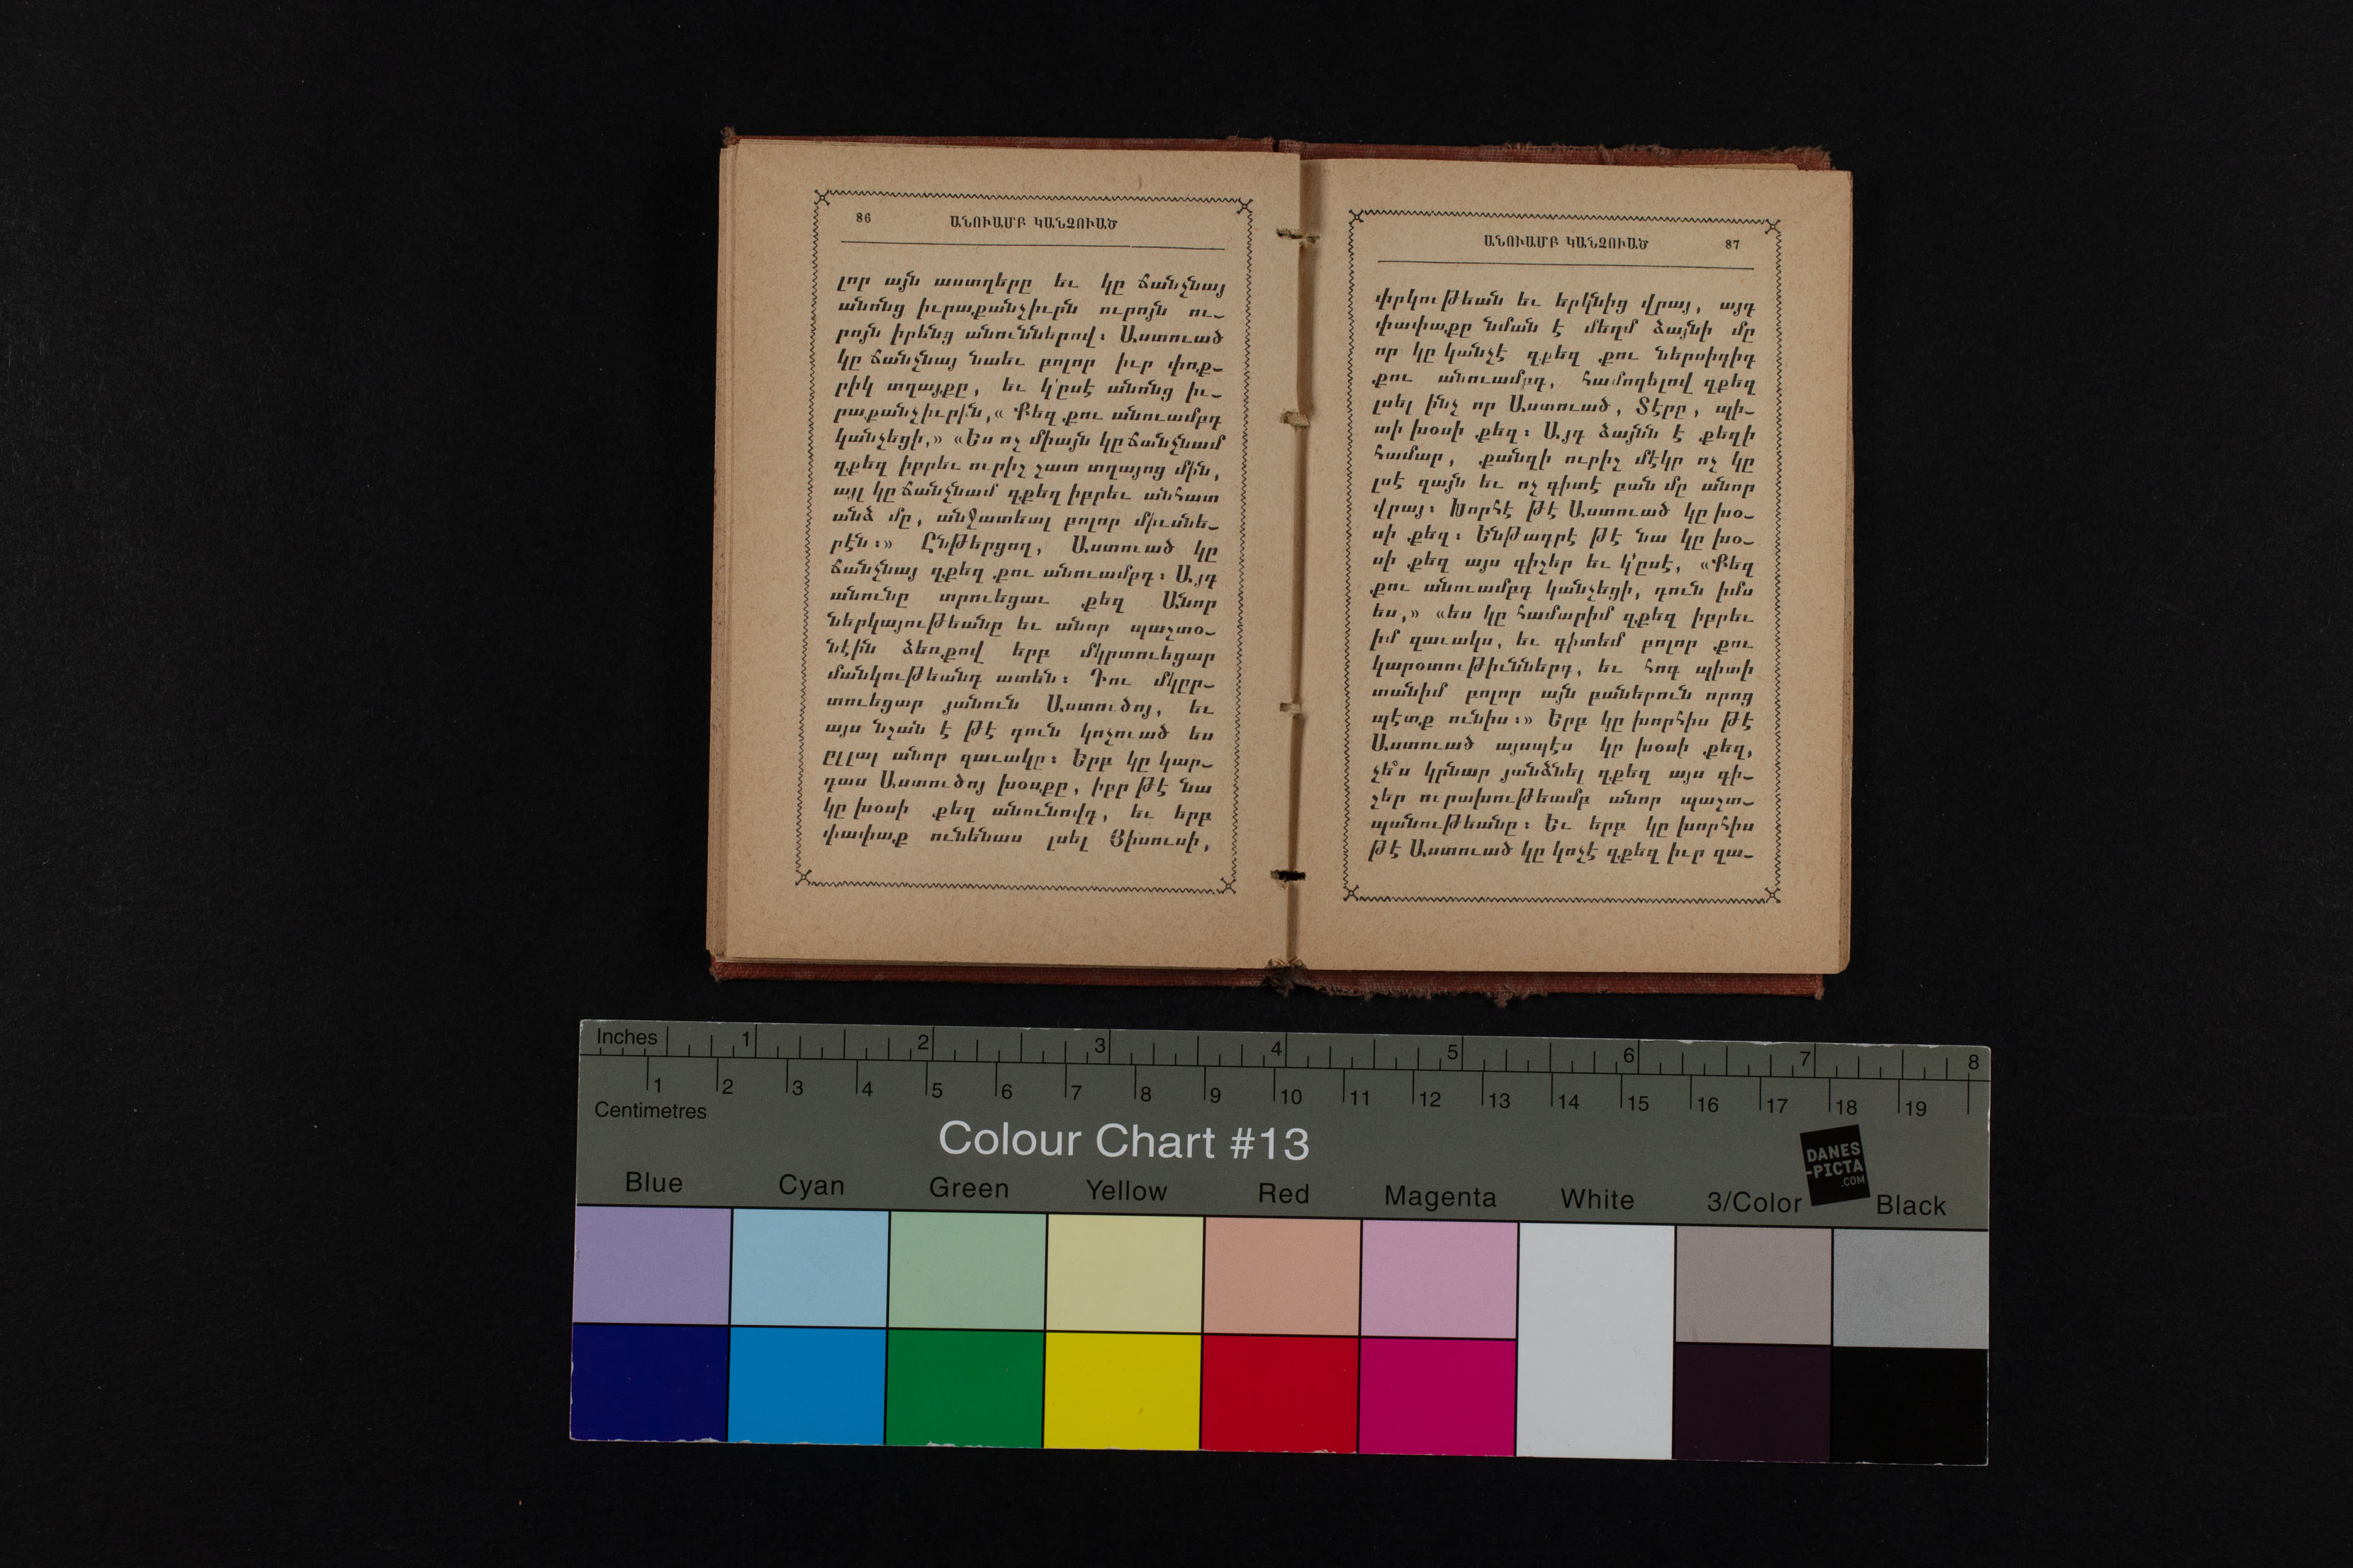 86 ԱՆՈՒԱՄԲ ԿԱՆՉՈՒԱԾ
լոր այն աստղերը եւ կը ճանչնայ
անոնց իւրաքանչիւրն ուրոյն ու-
րոյն իրենց անուններով։ Աստուած
կը ճանչնայ նաեւ բոլոր իւր փոք-
րիկ տղայքը, եւ կ՚ըսէ անոնց իւ-
րաքանչիւրին,« Քեզ քու անուամբդ
կանչեցի,» «Ես ոչ միայն կը ճանչնամ
զքեզ իբրեւ ուրիշ շատ տղայոց մին,
այլ կը ճանչնամ զքեզ իբրեւ անհատ
անձ մը, անջատեալ բոլոր միւսնե-
րէն։» Ընթերցող, Աստուած կը
ճանչնայ զքեզ քու անուամբդ։ Այդ
անունը տրուեցաւ քեզ Անոր
ներկայութեանը եւ անոր պաշտօ-
նէին ձեռքով երբ մկրտուեցար
մանկութեանդ ատեն։ Դու մկըր-
տուեցար յանուն Աստուծոյ, եւ
այս նշան է թէ դուն կոչուած ես
ըլլալ անոր զաւակը։ Երբ կը կար-
դաս Աստուծոյ խօսքը, իբր թէ նա
կը խօսի քեզ անունովդ, եւ երբ
փափաք ունենաս լսել Յիսուսի,
ԱՆՈՒԱՄԲ ԿԱՆՉՈՒԱԾ 87
փրկութեան եւ երկնից վրայ, այդ
փափաքը նման է մեղմ ձայնի մը
որ կը կանչէ զքեզ քու ներսիդիդ
քու անուամբդ, համոզելով զքեզ
լսել ինչ որ Աստուած, Տէրը, պի-
տի խօսի քեզ։ Այդ ձայնն է քեզի
համար, քանզի ուրիշ մէկը ոչ կը
լսէ զայն եւ ոչ գիտէ բան մը անոր
վրայ։ Խորհէ թէ Աստուած կը խօ-
սի քեզ։ Ենթադրէ թէ նա կը խօ-
սի քեզ այս գիշեր եւ կ՚ըսէ, «Քեզ
քու անուամբդ կանչեցի, դուն իմս
ես,» «ես կը համարիմ զքեզ իբրեւ
իմ զաւակս, եւ գիտեմ բոլոր քու
կարօտութիւններդ, եւ հոգ պիտի
տանիմ բոլոր այն բաներուն որոց
պէտք ունիս։» Երբ կը խորհիս թէ
Աստուած այսպէս կը խօսի քեզ,
չե՞ս կրնար յանձնել զքեզ այս գի-
շեր ուրախութեամբ անոր պաշտ-
պանութեանը։ Եւ երբ կը խորհիս
թէ Աստուած կը կոչէ զքեզ իւր զա-
Inches 1 2 3 4 5 6 7 8
1 2 3 4 5 6 7 8 9 10 11 12 13 14 15 16 17 18 19
Centimetres
Colour Chart #13
DANES
-PICTA
.COM
Blue Cyan Green Yellow Red Magenta White 3/Color Black